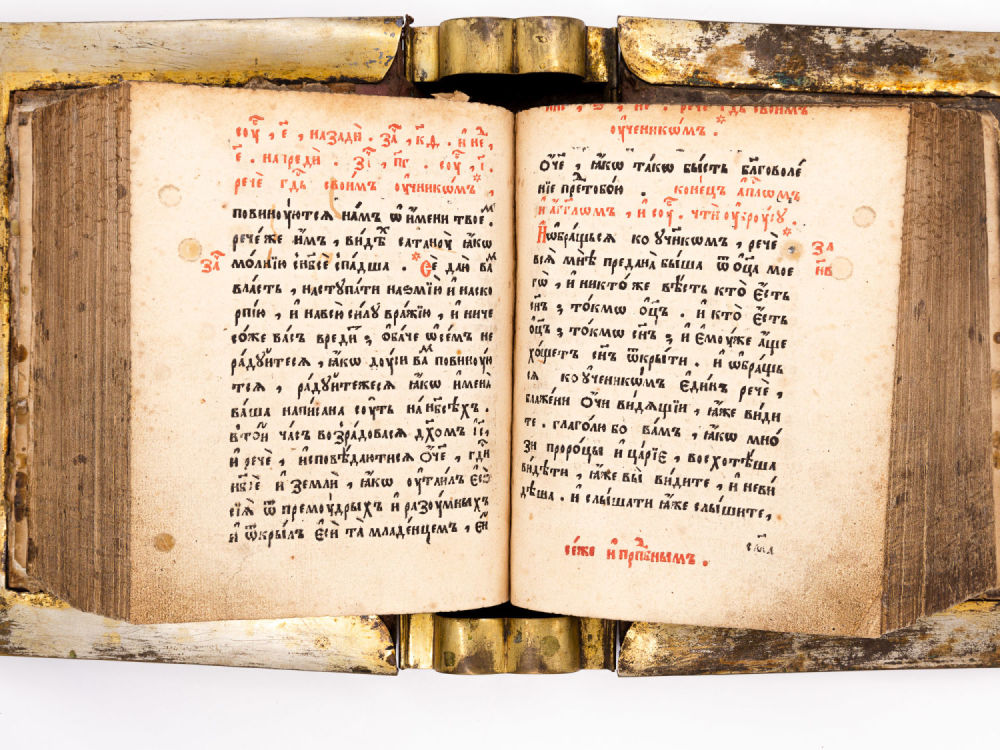 соу҃, е҃, назади́. за҃, к҃д. и҆ не҃,
е҃. напреди́. з҃і, пг҃. соу҃, і҃.
речѐ гд҇ь свои́мъ оу҆ч҃нкѡ́мъ,
повиноу́ются на́мъ ѡ҆ и҆́мени твое́м.
рече́ же и҆̀мъ, ви́дѣх сатаноу̀ ꙗ҆́кѡ
за҃
мо́лнїю с̾нб҃сѐ спа́дша. Сѐ даю̀ ва́м
вла́сть, настоупа́ти назмїѝ и҆ наско
рпі́ю, и҆ навсю̀ си́лу вра́жїю, и҆ ничѐ
со́же ва́съ вреди́т; ѻ҆ба́че ѡ҆се́мъ не
ра́дуйтеся, ꙗ҆́кѡ доу́си ва́м повиноую́
тся, ра́дуйтежеся ꙗ҆́кѡ и҆мена̀
ва́ша напи́сана соу́ть на нб҃сѣ́хъ.
в̾то́й ча́съ возра́довася дх҃омъ і҆с҃,
и҆ речѐ, и҆сповѣ́даютися ѻ҆́ч҃е, гд҇и
нб҃сѐ и҆ землѝ, ꙗ҆́кѡ оу҆таи́лъ є҆сѝ
сїѧ̀ ѿ премоу́дрыхъ и҆ разоу́мныхъ
и҆ ѿкры́лъ є҆сѝ та̀ младе́нцемъ, є҆́й
оу҆чн҃икѡ́мъ.
ѻ҆́ч҃е, ꙗ҆́кѡ та́кѡ бы́сть бл҃говоле́
нїе пре́тобо́ю. коне́цъ а҆пл҇ѡмъ
и҆ а҆́гг҃лѡмъ, и҆ соу҃. чтѝ оу҆трⷪ҇соу.
И҆ѡбра́щься ко оу҆ч҃нкѡмъ, речѐ,
за҃
н҃в
вся̀ мнѣ̀ предана̀ бы́ша ѿ ѻ҆ц҃а̀ мое
гѡ̀, и҆ никто́ же вѣ́сть кто̀ є҆́сть
сн҃ъ; то́кмѡ ѻ҆ц҃ъ. и҆ кто̀ є҆́сть
ѻ҆ц҃ъ; то́кмѡ сн҃ъ; и҆ є҆моу́же а҆́ще
хо́щетъ сн҃ъ ѿкры́ти. и҆ ѡ҆бра́щь
ся ко оу҆ч҃нкѡмъ є҆ди́нъ речѐ,
блаже́ни ѻ҆́чи ви́дящїи, ꙗ҆́же види
те. глаго́лю бо ва́мъ, ꙗ҆́кѡ мно́
зи проро́цы и҆ ца́рїе, восхотѣ́ша
ви́дѣти, ꙗ҆́же вы̀ ви́дите, и҆ неви́
дѣша. и҆ слы́шати ꙗ҆́же слы́шите,
се́же и҆ прп҃бнымъ.